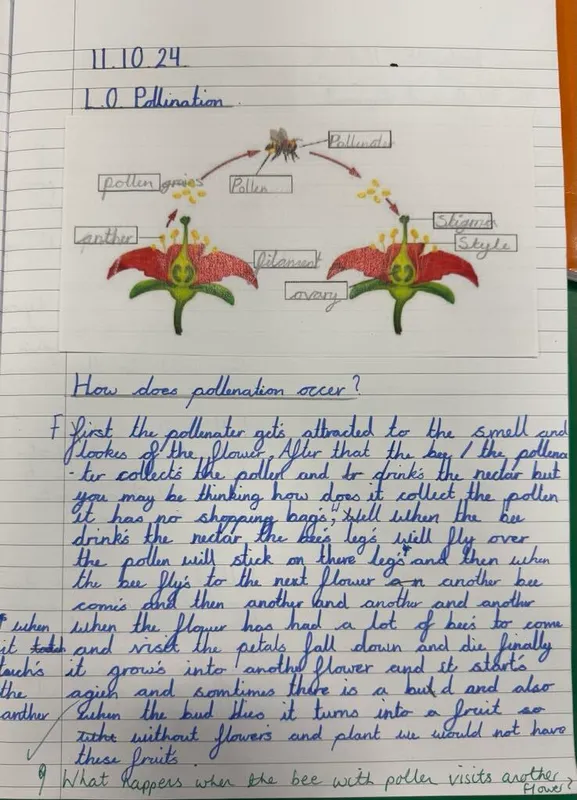 11.10.24
L.O Pollination
Pollinater
pollen grains
Pollen
Stigma
anther
Style
filament
ovary
How does pollenation occer?
F first the pollenater gets attracted to the smell and
lookes of the flower. After that the bee / the pollena
-ter collects the pollen and drink's the nectar but
you may be thinking how does it collect the pollen
it has no shopping bag's," Well when the bee
drink's the nectar the bee's leg's will fly over
the pollen will stick on there leg's* and then when
the bee fly's to the next flower an another bee
come's and then another and another and another
* when when the flower has had a lot of bee's to come
it and visit the petals fall down and die finally
touch's it grow's into another flower and it starts
the agien and somtimes there is a bud and also
anther when the bud dies it turns into a fruit so
without flowers and plant we would not have
these fruits
What happens when the bee with pollen visits another
flower?